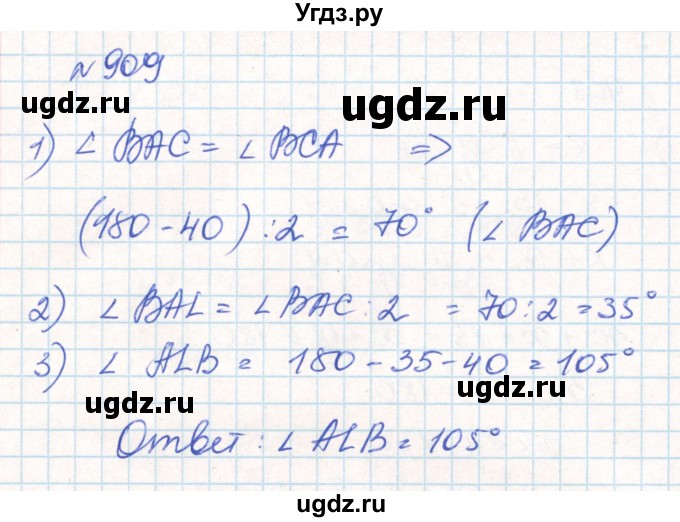 Угдз.ру
№ 909
ugdz.ru
ugdz.ru
1) ∠ BAC = ∠ BCA ⇒
(180 - 40) : 2 = 70° (∠ BAC)
2) ∠ BAL = ∠ BAC : 2 = 70 : 2 = 35°
3) ∠ ALB = 180 - 35 - 40 = 105°
ugdz.ru
ugdz.ru
Ответ: ∠ ALB = 105°
ugdz.ru